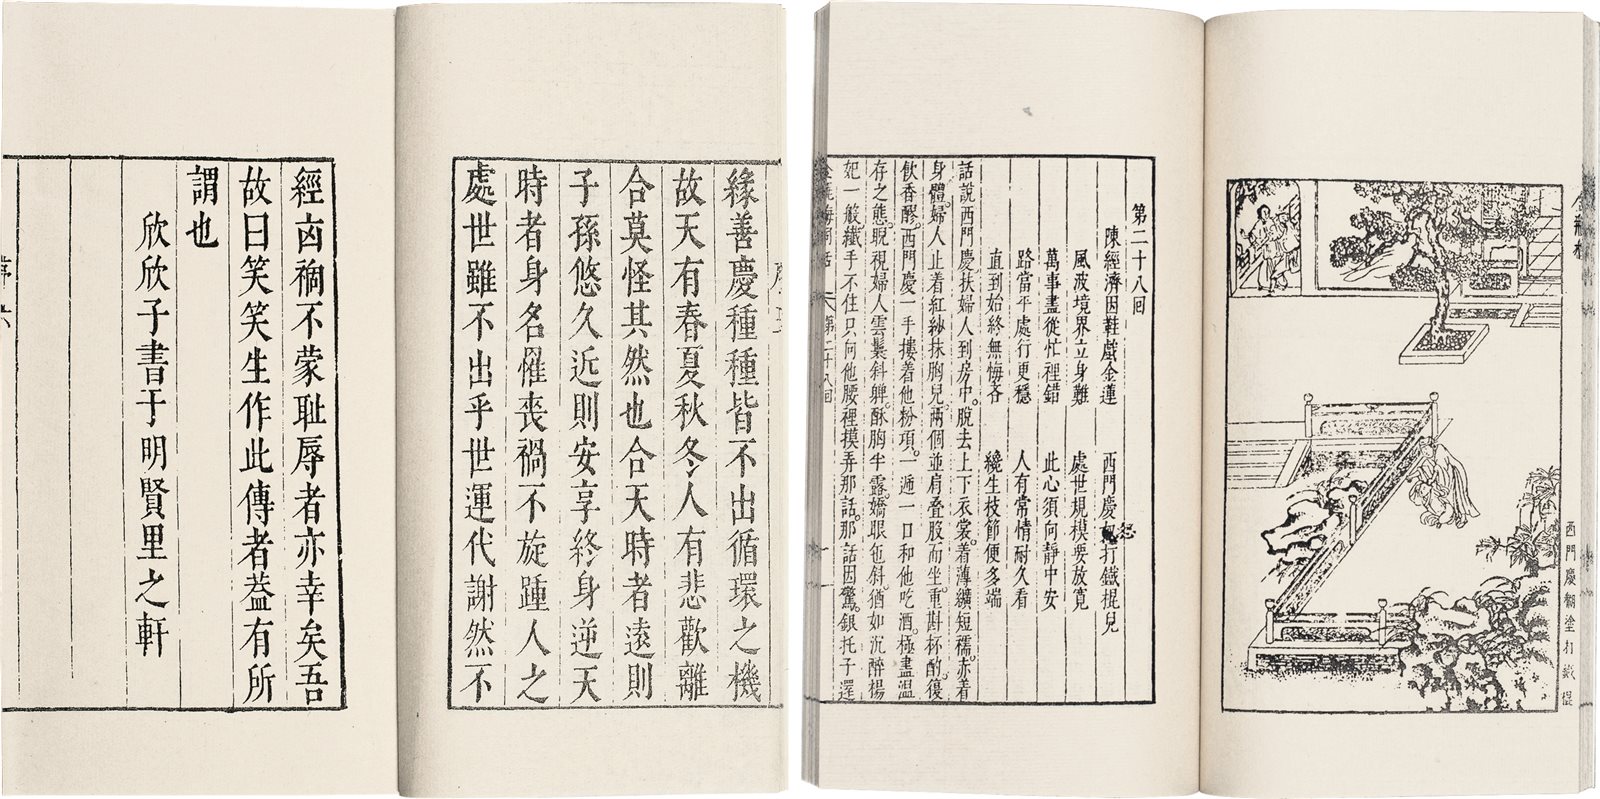 緣善慶種種皆不出循環之機
故天有春夏秋冬人有悲歡離
合莫怪其然也合天時者遠則
子孫悠久近則安享終身逆天
時者身名罹喪禍不旋踵人之
處世雖不出乎世運代謝然不
經凶禍不蒙耻辱者亦幸矣吾
故曰笑笑生作此傳者葢有所
謂也
欣欣子書于明賢里之軒
金瓶梅
西門慶糊塗打鐵棍
第二十八回
陳經濟因鞋戲金蓮 西門慶怒打鐵棍兒
風波境界立身難 處世規模要放寬
萬事盡從忙裡錯 此心須向靜中安
路當平處行更穩 人有常情耐久看
直到始終無悔吝 纔生枝節便多端
話說西門慶扶婦人到房中。脫去上下衣裳。着薄纊短襦。赤着
身體。婦人止着紅紗抹胸兒。兩個並肩疊股而坐。重斟杯酌。復
飲香醪。西門慶一手摟着他粉項。一遞一口和他吃酒。極盡温
存之態。睨視婦人雲鬟斜軃。酥胸半露。嬌眼乜斜。猶如沉醉楊
妃一般。纖手不住只向他腰裡摸弄那話。那話因驚。銀托子還
金瓶梅詞話 第二十八回